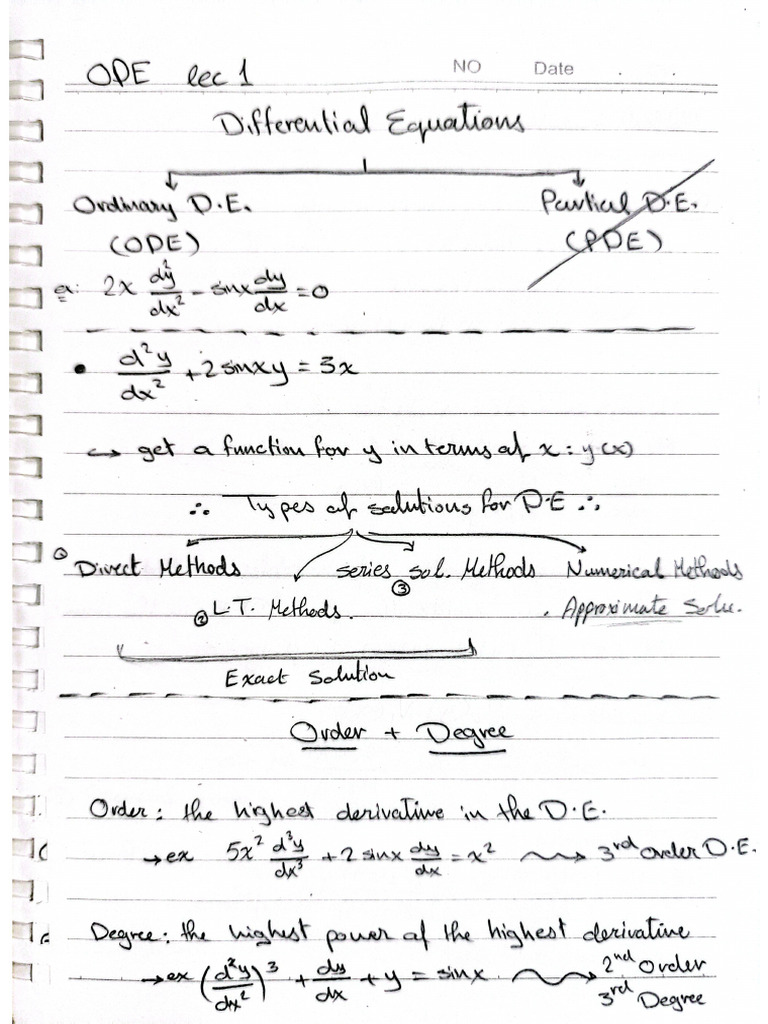 ODE lec 1
NO Date
Differential Equations
Ordinary D.E. Partial D.E.
(ODE) (PDE)
ex: 2x d²y/dx² - sinx dy/dx = 0
• d²y/dx² + 2 sinxy = 3x
↪ get a function for y in terms of x : y(x)
∴ Types of solutions for D.E ∴
① Direct Methods series sol. Methods Numerical Methods
② L.T. Methods. ③ . Approximate Solu.
Exact Solution
Order + Degree
Order : the highest derivative in the D.E.
→ ex 5x² d³y/dx³ + 2 sinx dy/dx = x² ⇝ 3rd order D.E.
Degree : the highest power of the highest derivative
→ ex (d²y/dx²)³ + dy/dx + y = sinx ⇝ 2nd Order
3rd Degree